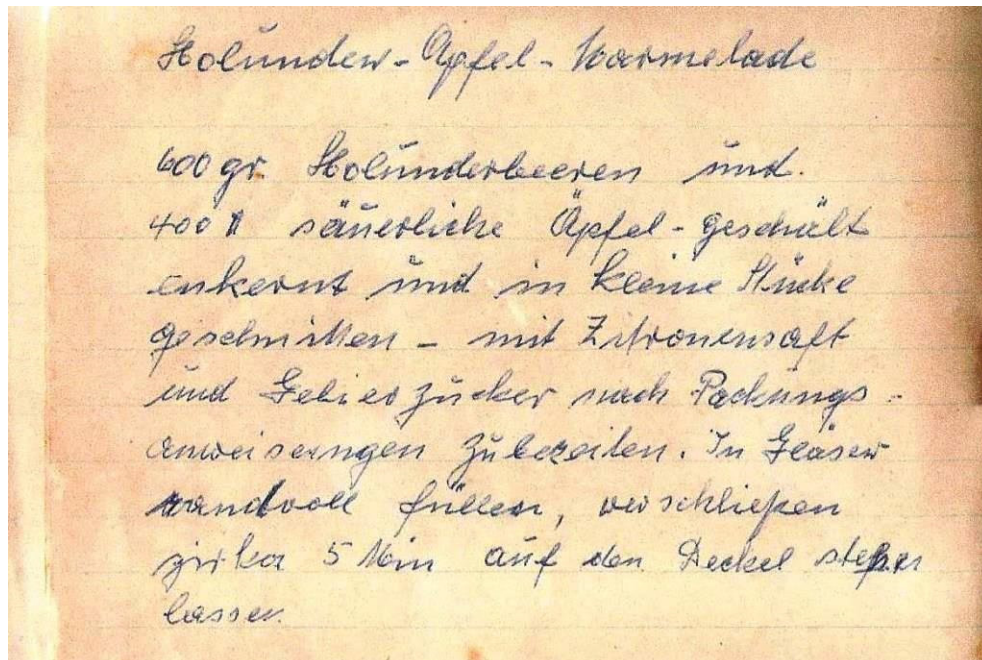 Holunder-Äpfel-Marmelade
600 gr. Holunderbeeren und.
400 " säuerliche Äpfel - geschält
enkernt und in kleine Stücke
geschnitten - mit Zitronensaft
und Gelierzucker nach Packungs-
anweisungen zubereiten. In Gläser
randvoll füllen, verschließen
zirka 5 Min auf den Deckel stehen
lassen.